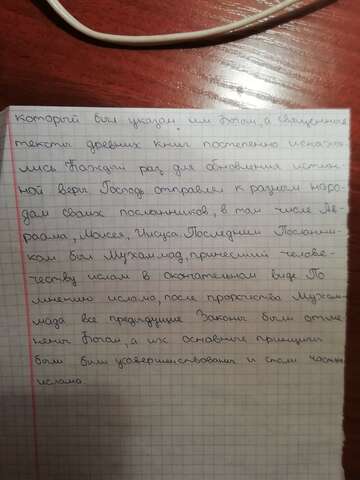 который был указан им Богом, а священные
тексты древних книг постепенно искажа
лись. Каждый раз для обновления истин
ной веры Господь отправлял к разным наро
дам своих посланников, в том числе Ав
раама, Моисея, Иисуса. Последним Посланни
ком был Мухаммад, принесший челове
честву ислам в окончательном виде. По
мнению ислама, после пророчества Мухам
мада все предыдущие Законы были отме
нены Богом, а их основные принципы
были были усовершенствованы и стали частью
ислама.